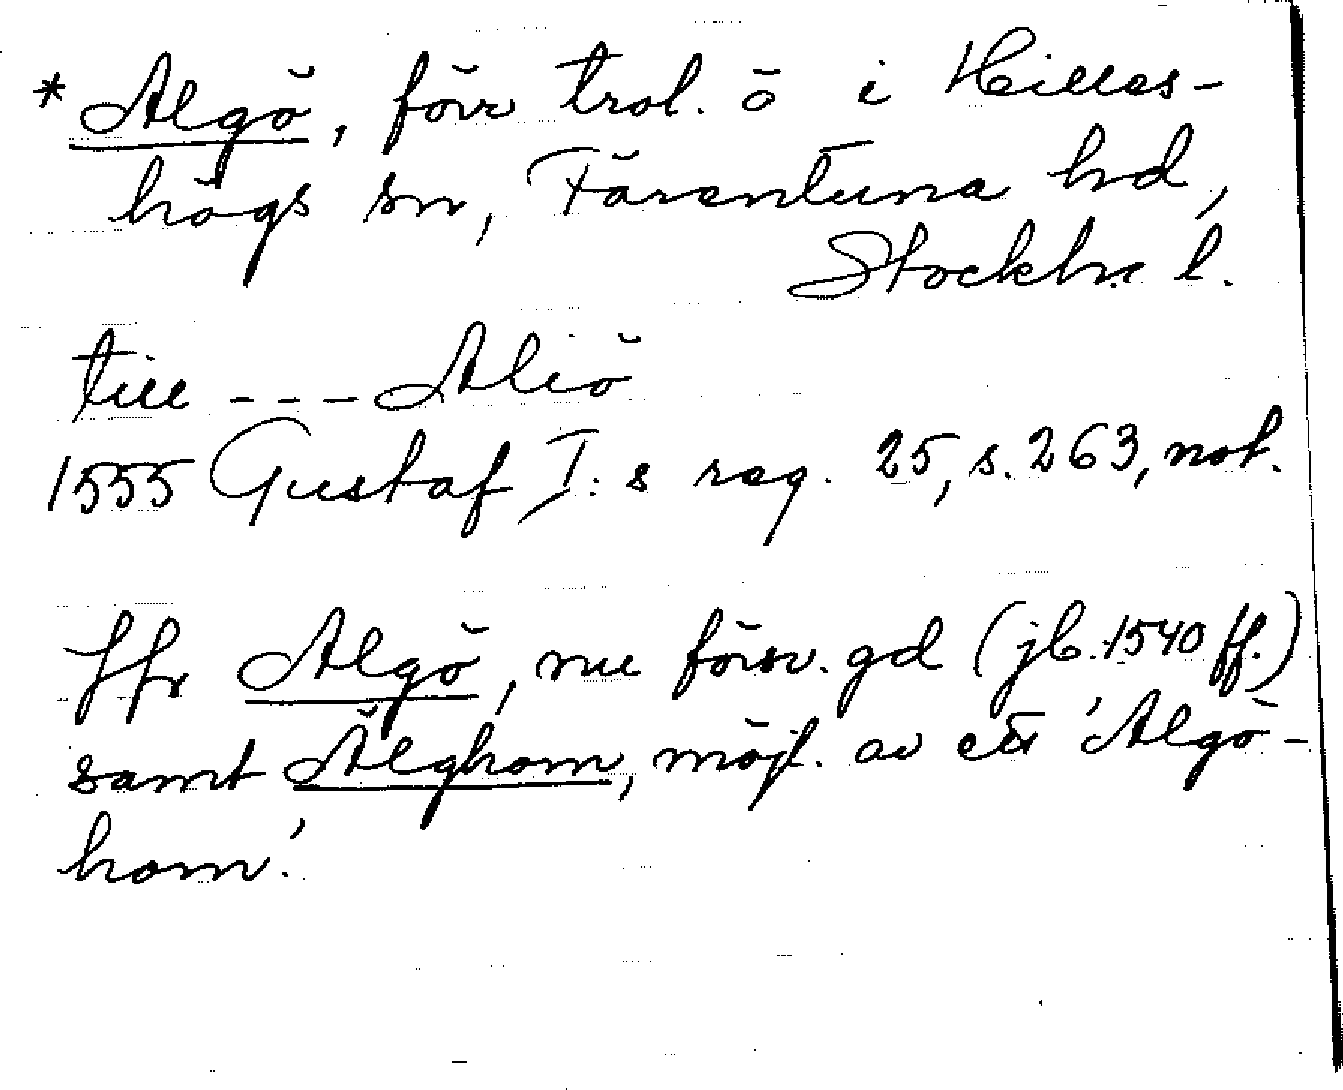 * Algö, förr trol. ö i Hilles-
högs sn, Färentuna hd,
Stockh. l.
till --- Aliö
1555 Gustaf I:s reg. 25, s. 263, not.
Jfr Algö, nu försv. gd (jb. 1540 ff.)
samt Älghom, möjl. av ett 'Algö-
hom'.